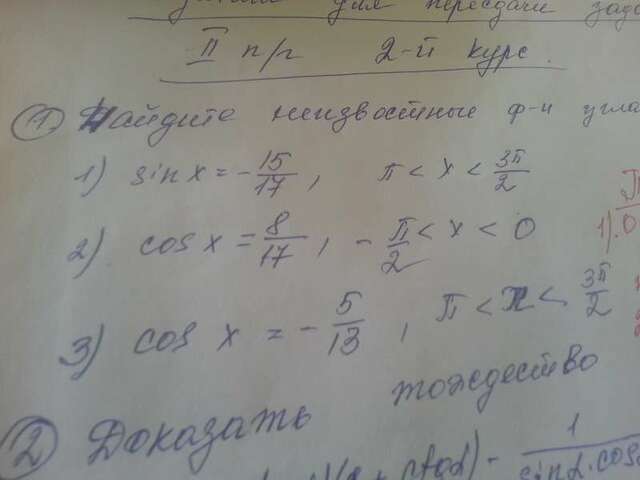 для пересдачи
II п/г 2-й курс.
1. Найдите неизвестные ф-и угла
1) sin x = -15/17, π < x < 3π/2
2) cos x = 8/17, -π/2 < x < 0
3) cos x = -5/13, π < x < 3π/2
2 Доказать тождество
1/sinα·cosα